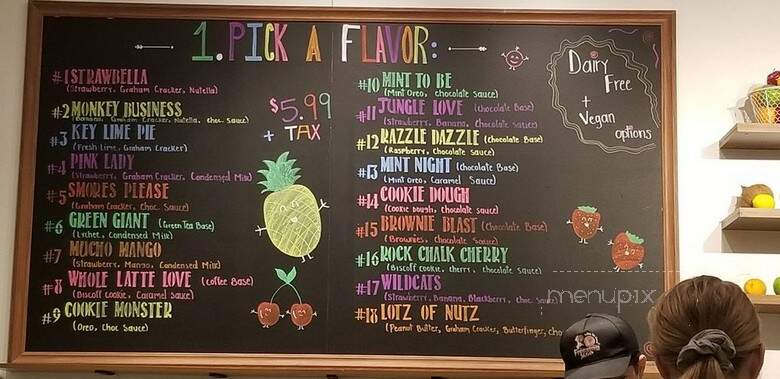 1. PICK A FLAVOR:
#1 STRAWBELLA
(Strawberry, Graham Cracker, Nutella)
#2 MONKEY BUSINESS
(Banana, Graham Cracker, Nutella, choc. Sauce)
#3 KEY LIME PIE
(Fresh Lime, Graham Cracker)
#4 PINK LADY
(Strawberry, Graham Cracker, Condensed Milk)
#5 SMORES PLEASE
(Graham Cracker, Choc. Sauce)
#6 GREEN GIANT (Green Tea Base)
(Lychee, Condensed Milk)
#7 MUCHO MANGO
(Strawberry, Mango, Condensed Milk)
#8 WHOLE LATTE LOVE (Coffee Base)
(Biscoff Cookie, Caramel Sauce)
#9 COOKIE MONSTER
(Oreo, Choc Sauce)
$5.99
+ TAX
#10 MINT TO BE
(Mint Oreo, chocolate Sauce)
#11 JUNGLE LOVE (Chocolate Base)
(Strawberry, Banana, Chocolate Sauce)
#12 RAZZLE DAZZLE (Chocolate Base)
(Raspberry, Chocolate Sauce)
#13 MINT NIGHT (Chocolate Base)
(Mint Oreo, Caramel Sauce)
#14 COOKIE DOUGH
(Cookie Dough, chocolate Sauce)
#15 BROWNIE BLAST (Chocolate Base)
(Brownies, Chocolate Sauce)
#16 ROCK CHALK CHERRY
(Biscoff Cookie, cherry, chocolate Sauce)
#17 WILDCATS
(Strawberry, Banana, Blackberry, choc. Sauce)
#18 LOTZ OF NUTZ
(Peanut Butter, Graham Cracker, Butterfinger, cho
Dairy
Free
+
Vegan
options
menupix